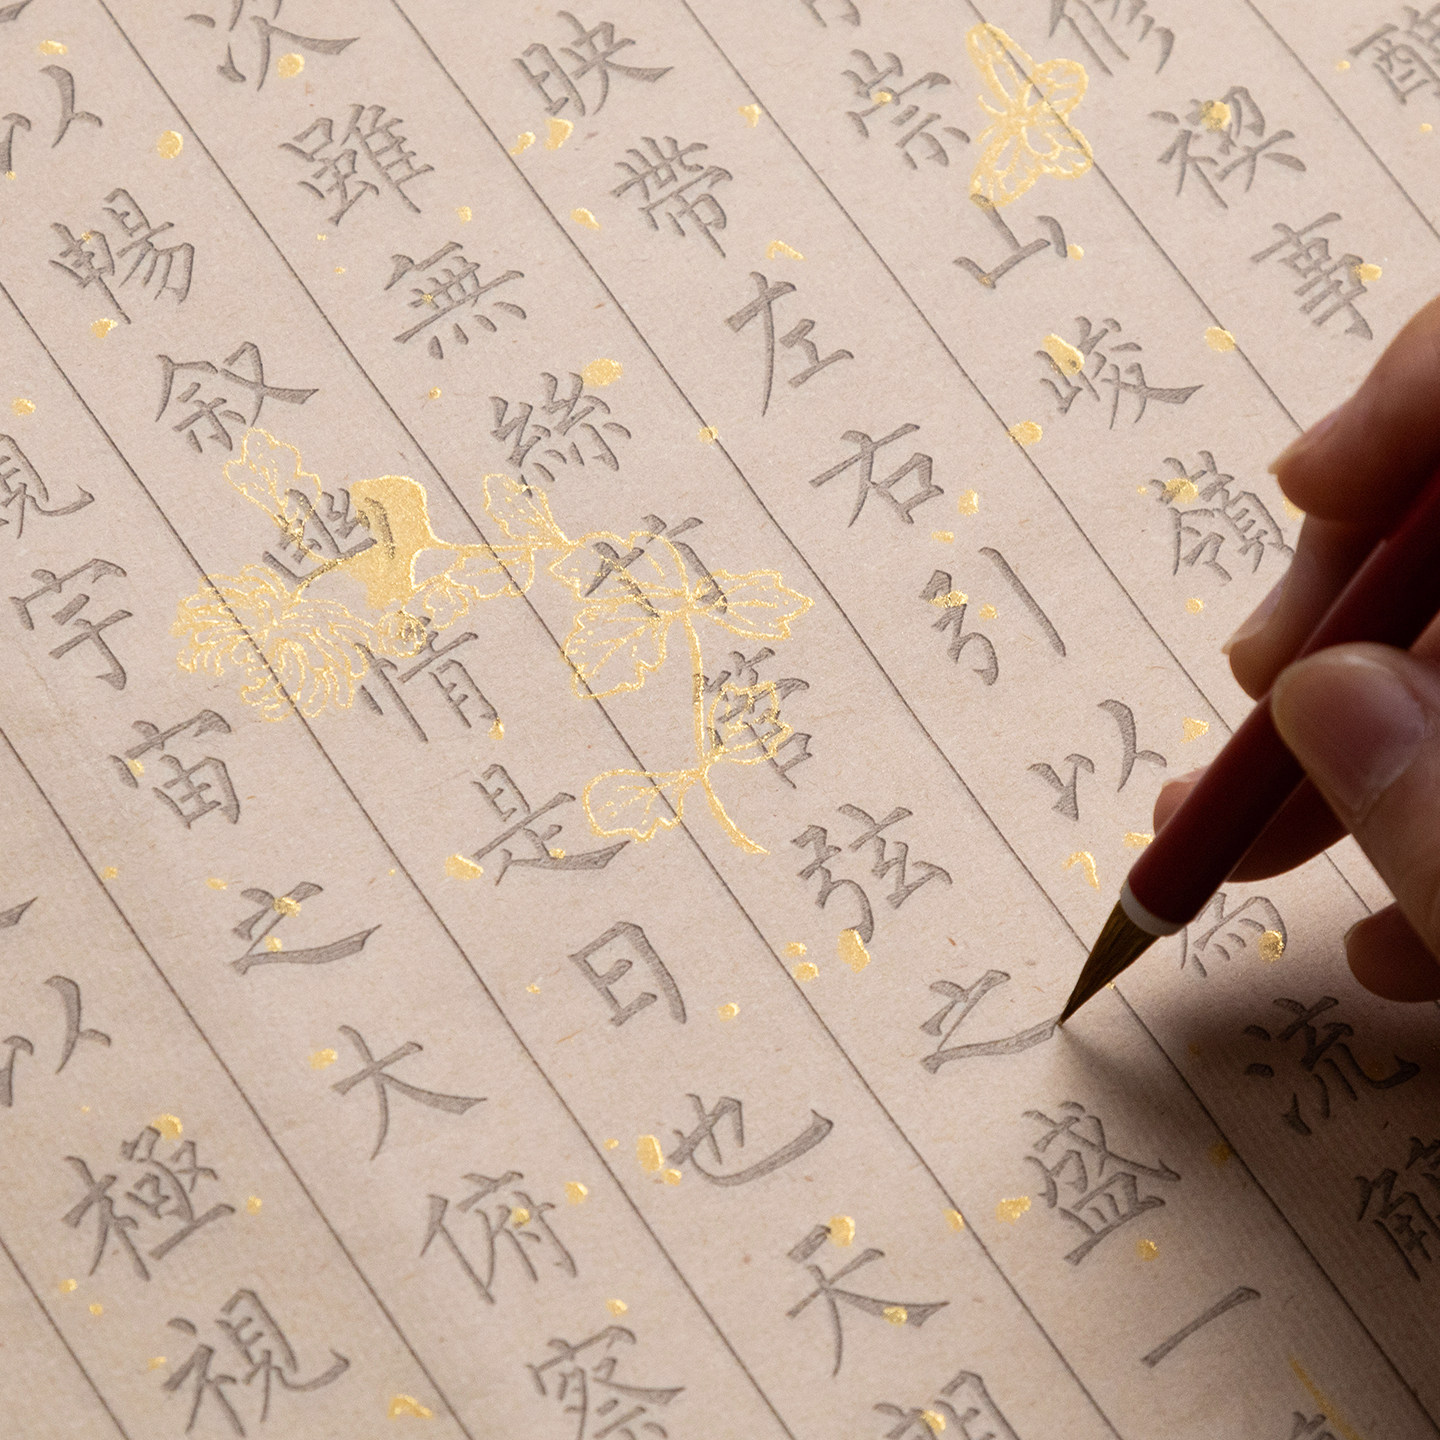 修禊事
崇山峻嶺
映帶左右引以為流觴
次雖無絲竹管弦之盛一
以暢叙幽情是日也天朗
觀宇宙之大俯察
以極視